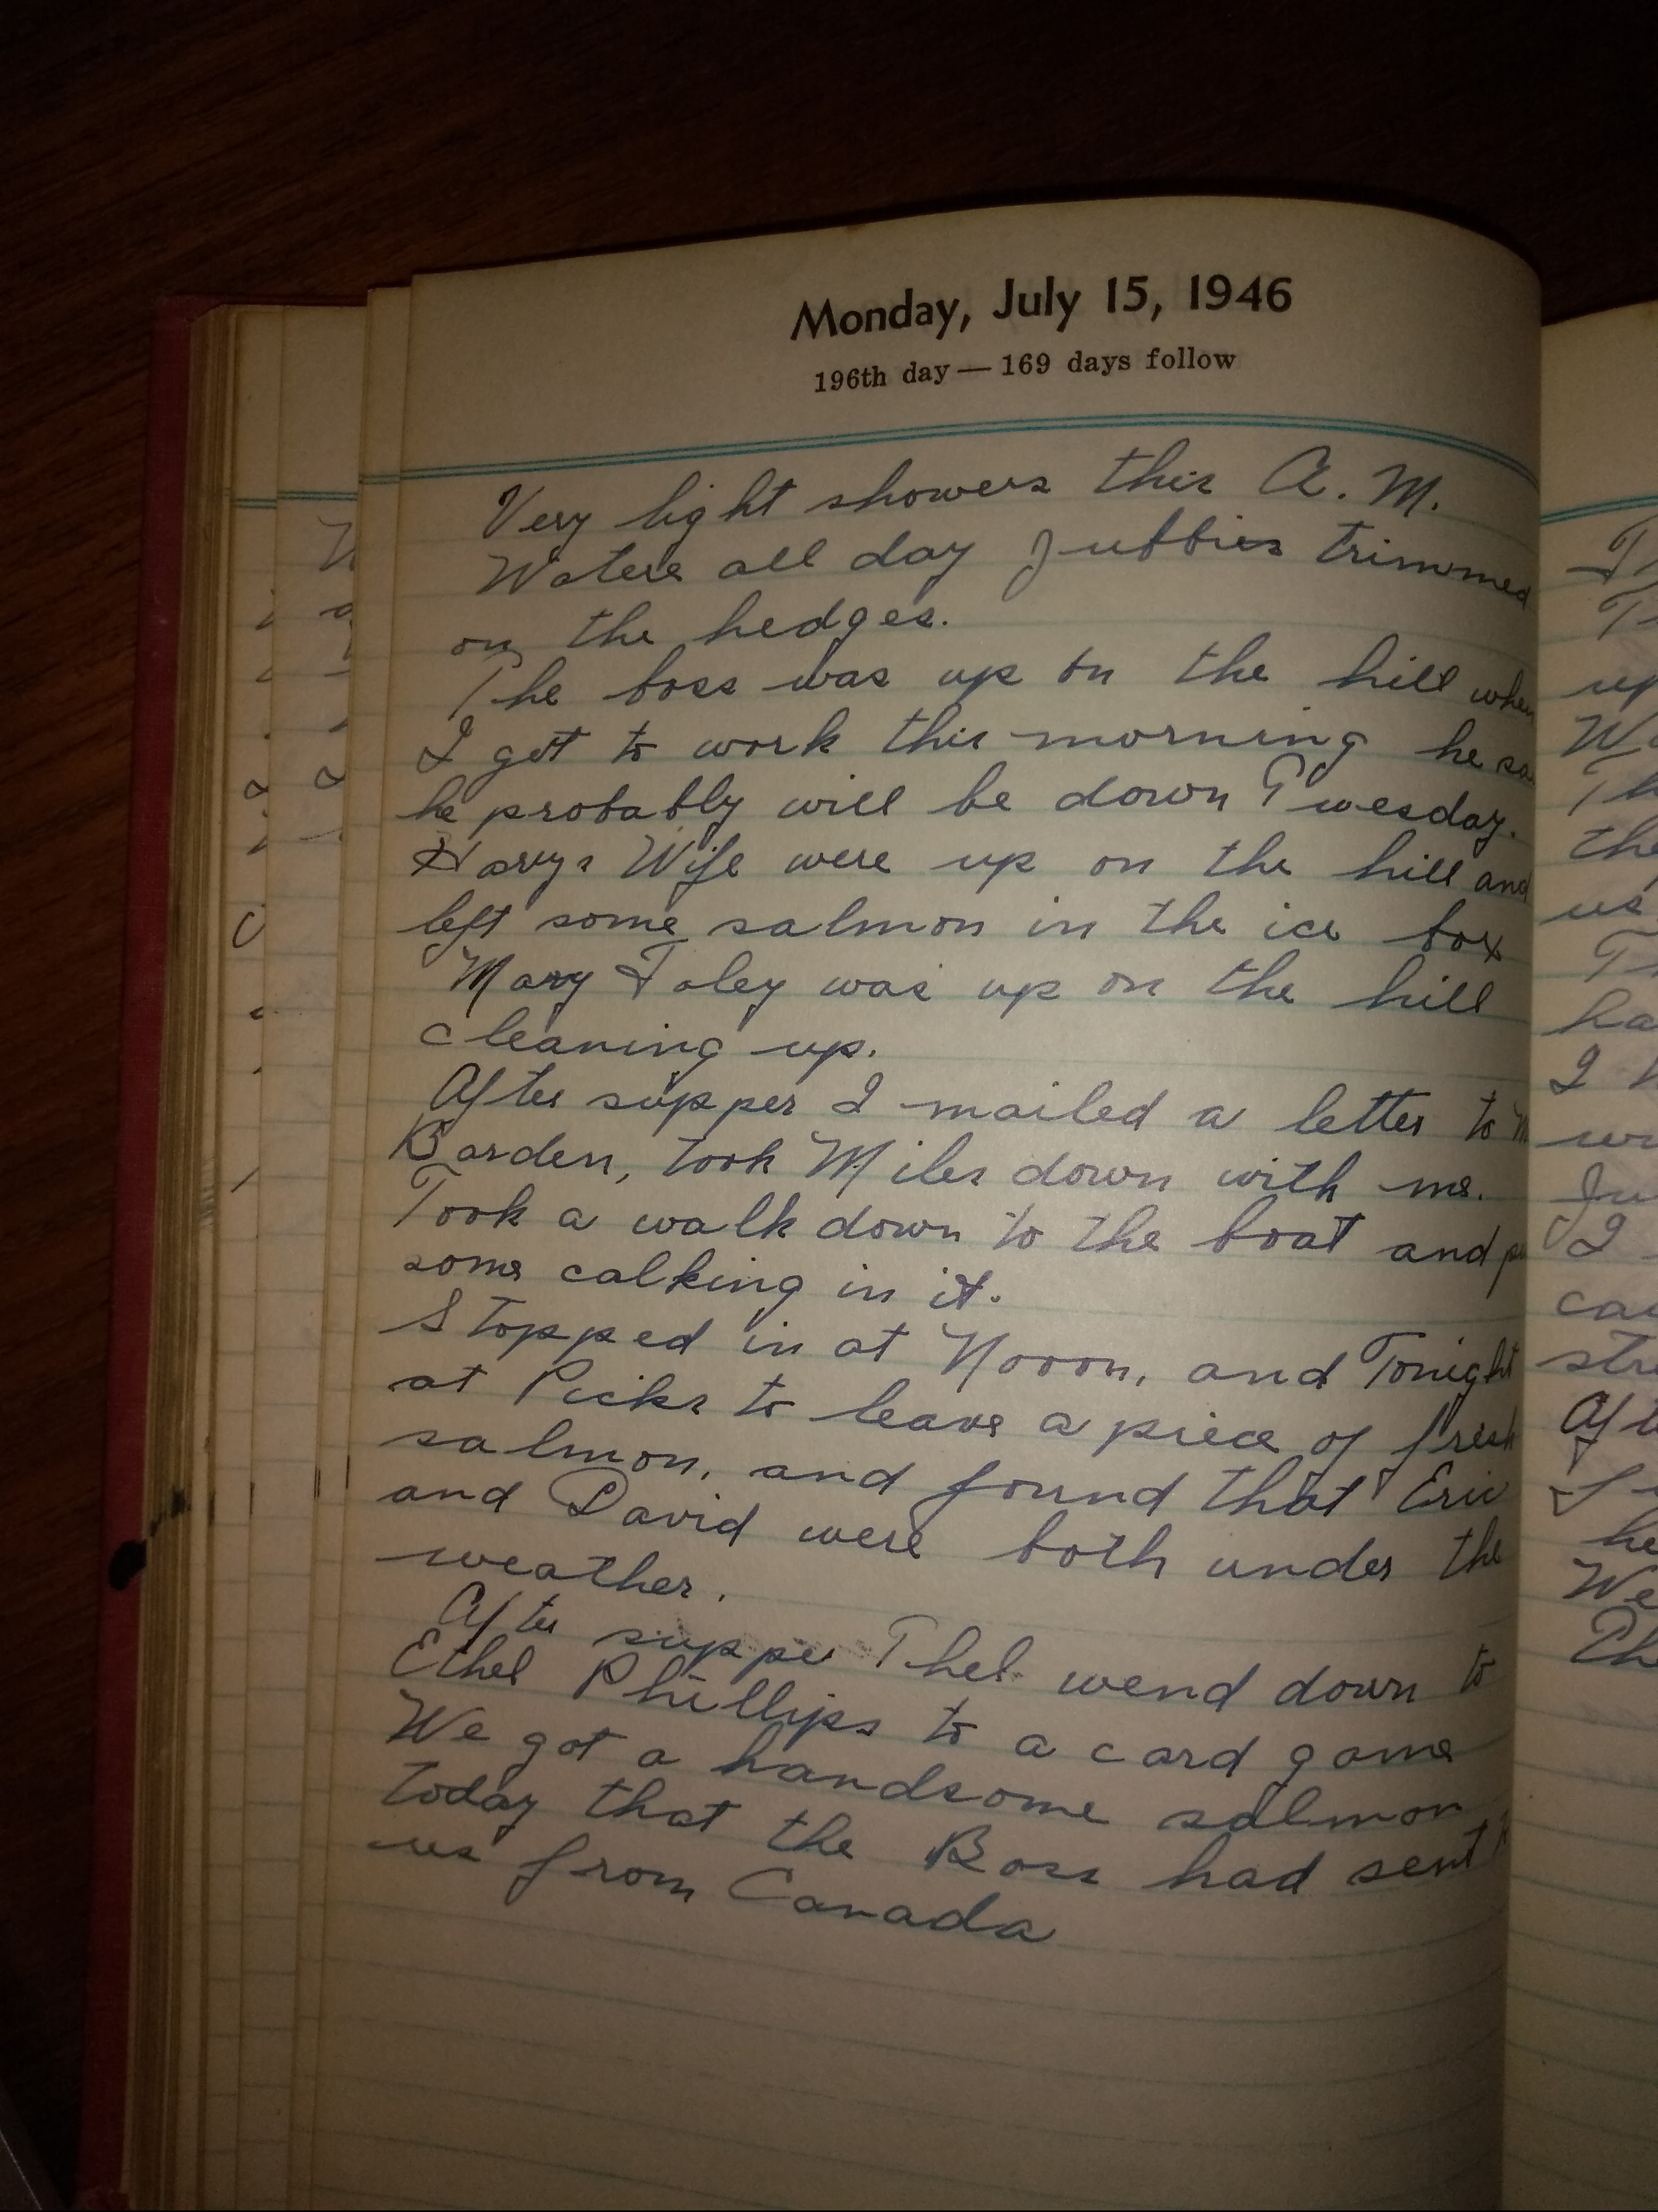 Monday, July 15, 1946
196th day — 169 days follow
Very light showers this A. M.
Waters all day Jubbies trimmed
on the hedges.
The boss was up on the hill when
I got to work this morning he
he probably will be down Tuesday.
Harys Wife were up on the hill and
left some salmon in the ice box
Mary Foley was up on the hill
cleaning up.
After supper I mailed a letter to
Barden, took Miles down with me.
Took a walk down to the boat and
some calking in it.
Stopped in at Nooon, and Tonight
at Picks to leave a piece of fresh
salmon, and found that Eric
and David were both under the
weather.
After suppe Thel wend down to
Ethel Phillips to a card game
We got a handsome salmon
today that the Boss had sent
us from Canada